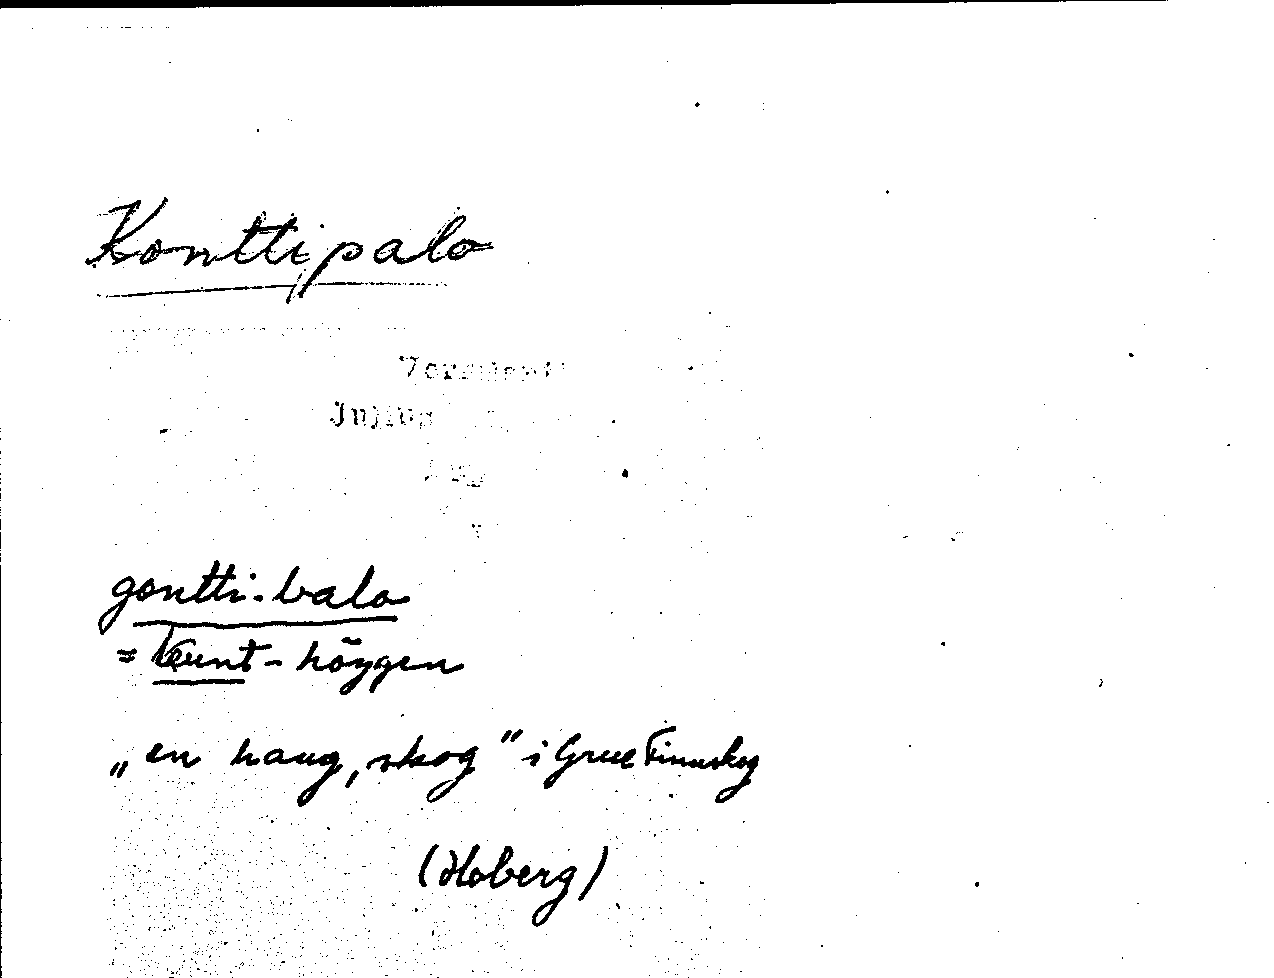 Konttipalo
Julius
gontti-balo
= Kunt-höygen
„en haug, skog" i Grue Finnskog
(Moberg)